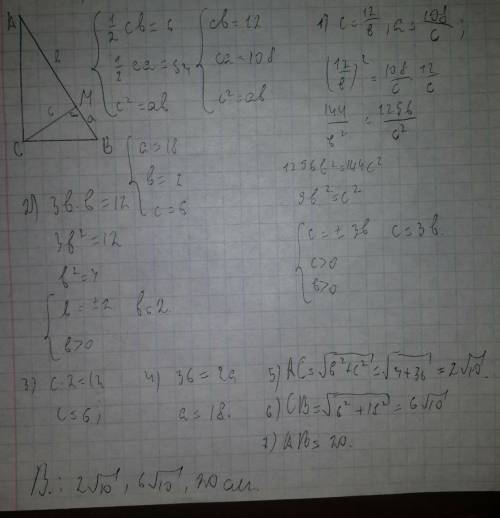 A
b
c
M
a
C
B
{ 1/2 cb = 6
1/2 ca = 54
c² = ab
{ cb = 12
ca = 108
c² = ab
{ a = 18
b = 2
c = 6
1) c = 12/b, a = 108/c;
(12/b)² = 108/c · 12/c
144/b² = 1296/c²
1296b² = 144c²
9b² = c²
{ c = ± 3b c = 3b.
c > 0
b > 0
2) 3b · b = 12
3b² = 12
b² = 4
{ b = ± 2 b = 2.
b > 0
3) c · 2 = 12
c = 6;
4) 36 = 2a
a = 18.
5) AC = √b² + c² = √4 + 36 = 2√10.
6) CB = √6² + 18² = 6√10
7) AB = 20.
В.: 2√10, 6√10, 20 см.